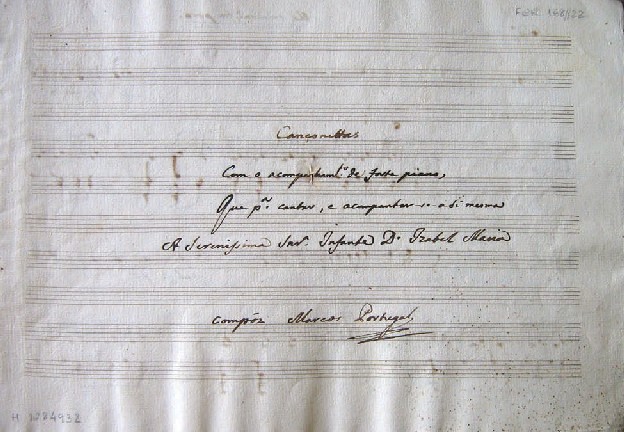 F.CR. 168//22
Cansonettas
Com o acompanham.to de forte piano,
Que p.a cantar, e acompanhar-se a si mesma
A Serenissima Snr.a Infanta D. Izabel Maria
Compôz Marcos Portugal,